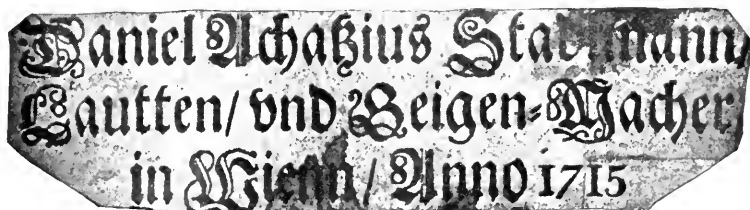 Daniel Achatzius Stadlmann,
Lautten/ vnd Geigen-Macher
in Wienn/ Anno 1715